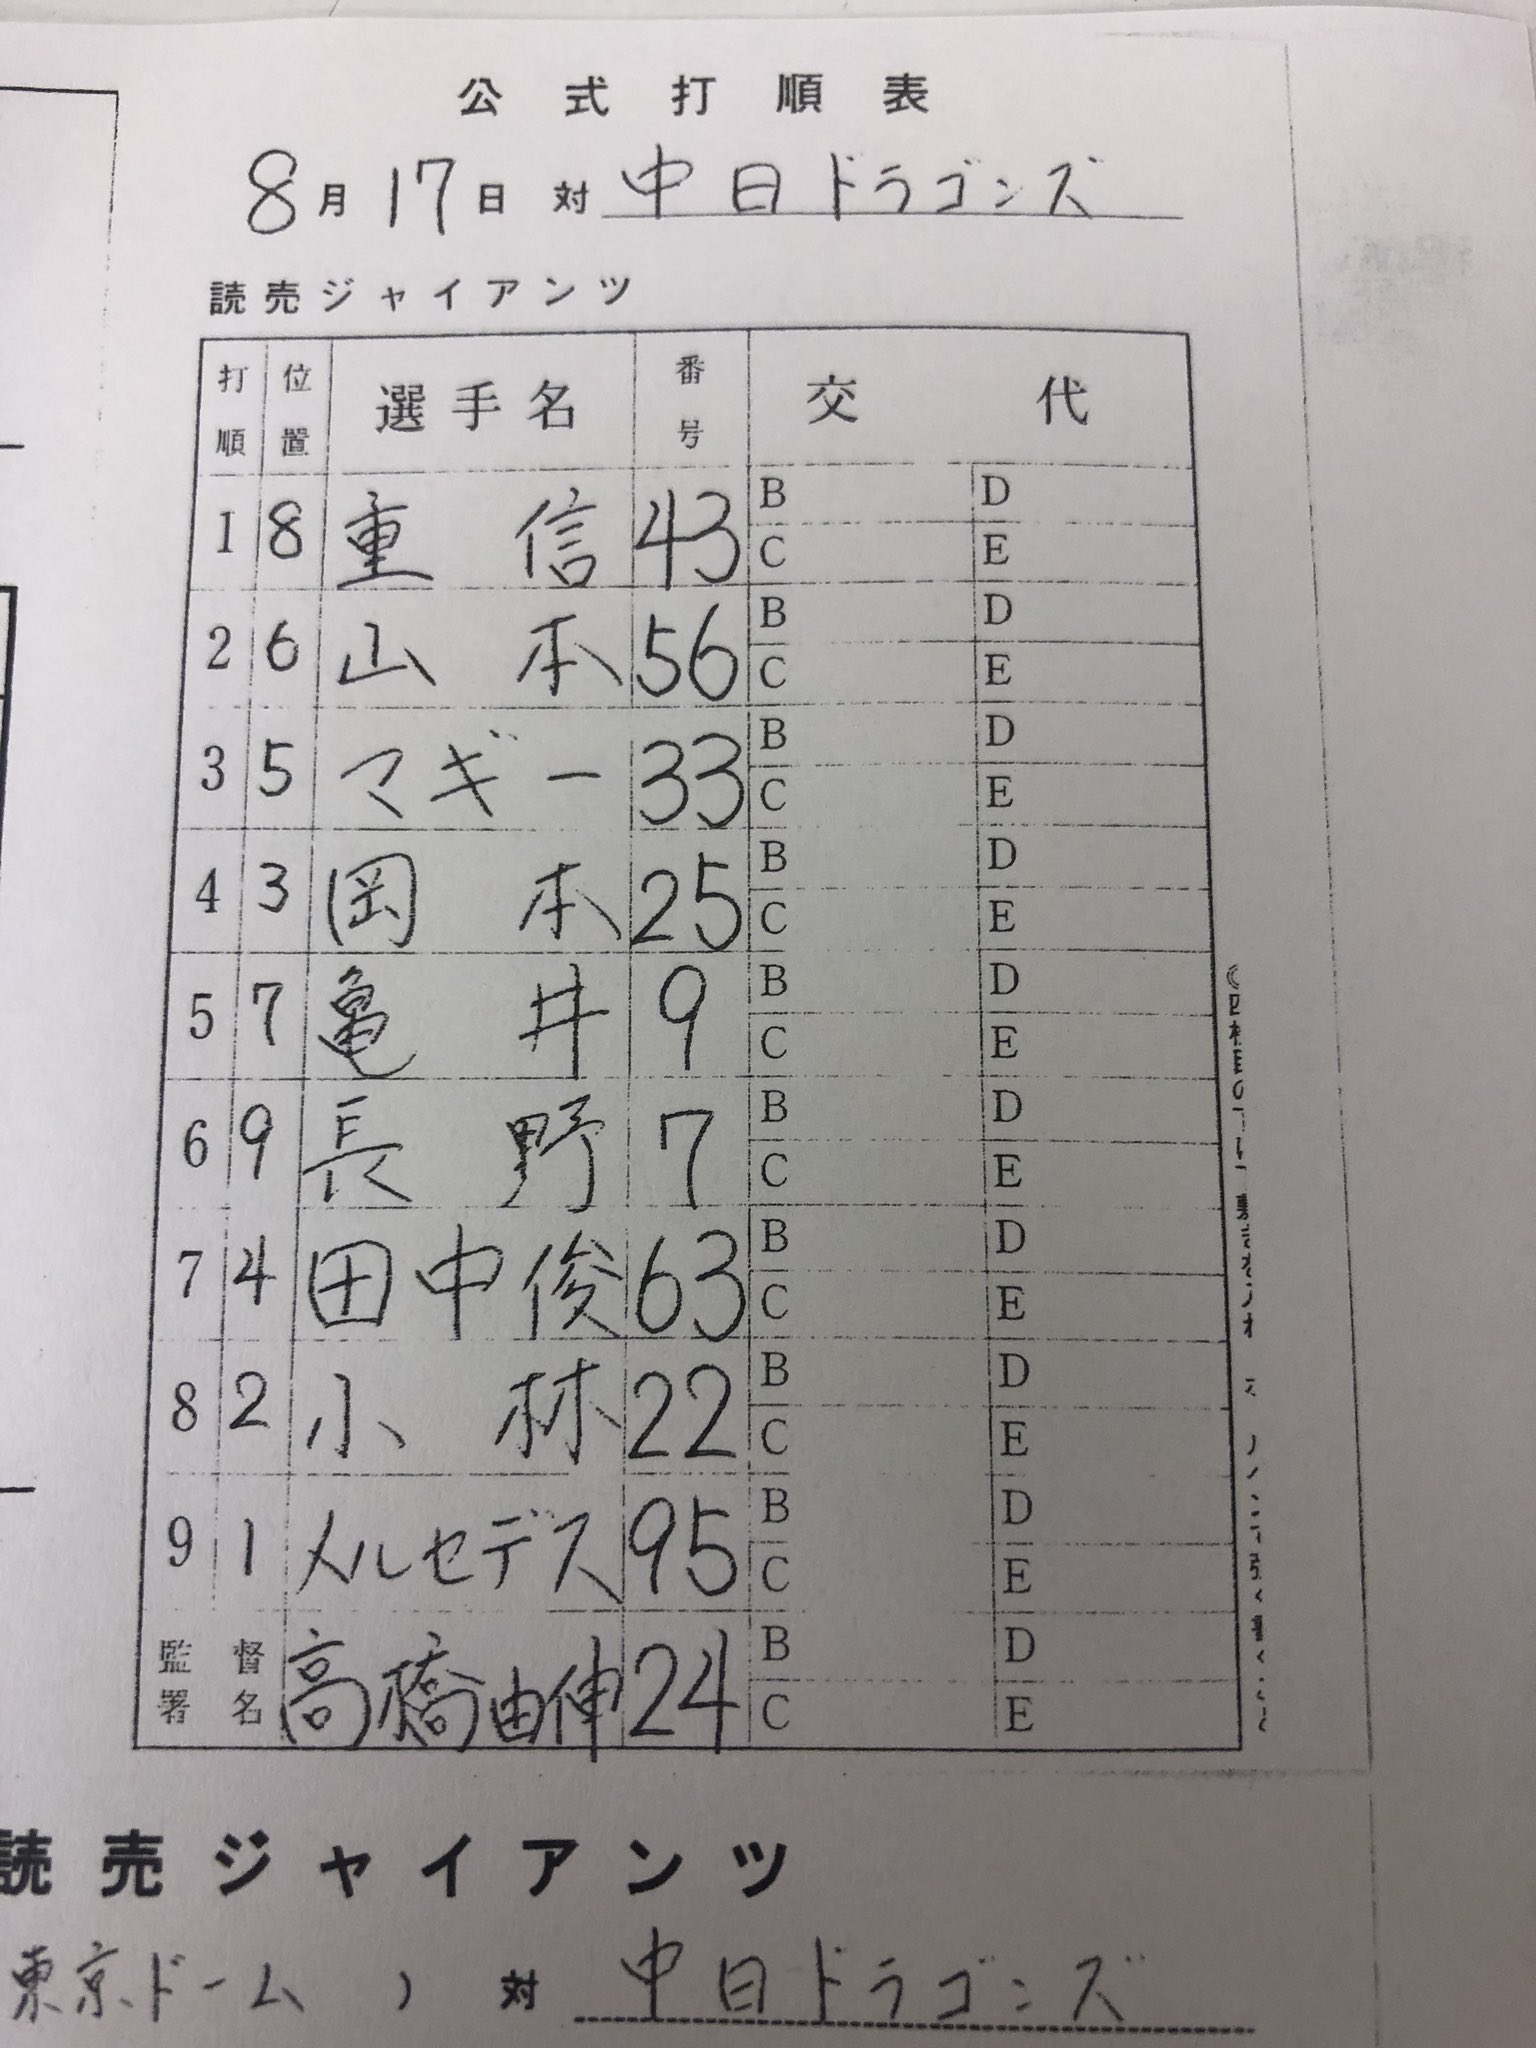 公式打順表
8月17日 対 中日ドラゴンズ
読売ジャイアンツ
打順 位置 選手名 番号 交代
1 8 重信 43 B D
C E
2 6 山本 56 B D
C E
3 5 マギー 33 B D
C E
4 3 岡本 25 B D
C E
5 7 亀井 9 B D
C E
6 9 長野 7 B D
C E
7 4 田中俊 63 B D
C E
8 2 小林 22 B D
C E
9 1 メルセデス 95 B D
C E
監督署名 高橋由伸 24 B D
C E
読売ジャイアンツ
東京ドーム ) 対 中日ドラゴンズ